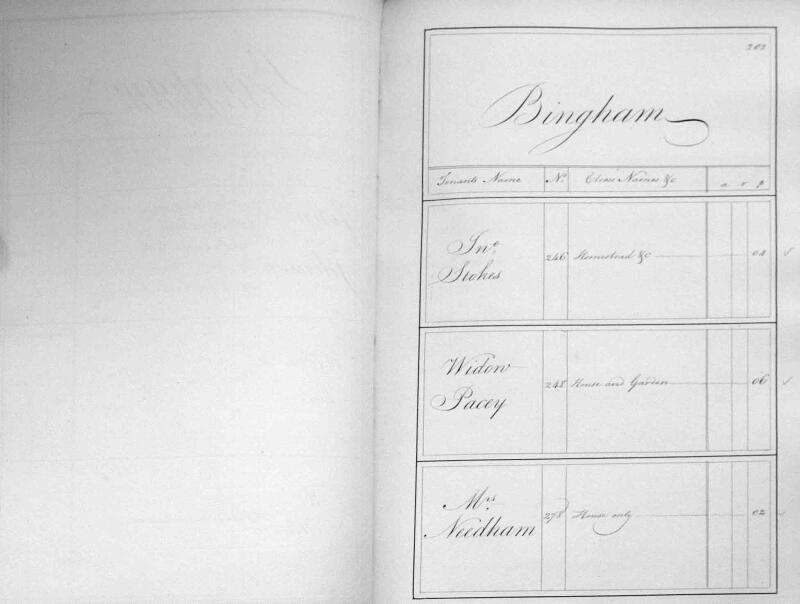 202
Bingham
Tenants Name No. Close Names &c a r p
Jno.
Stokes
246 Homestead &c
Widow
Pacey
248 House and Garden 06
Mrs.
Needham
278 House only 02